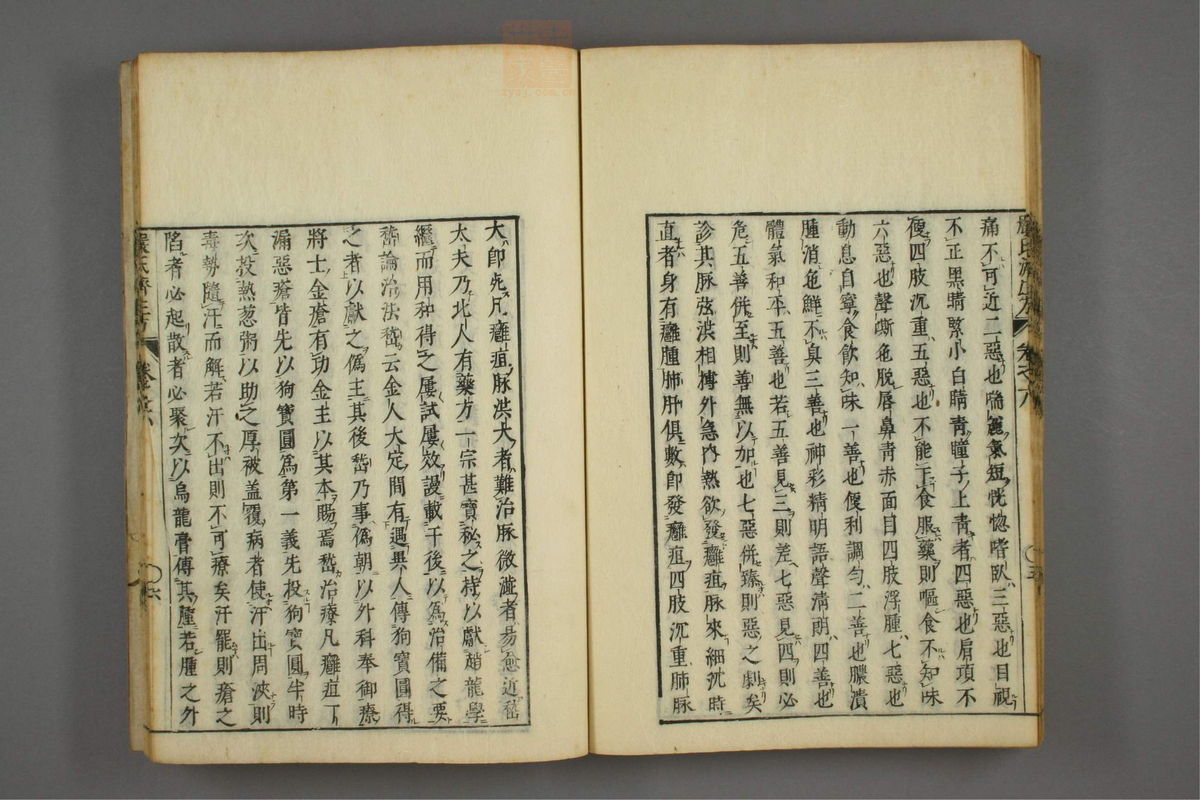 嚴氏濟生方 卷之六 ○五
痛不可近二惡也喘麤氣短恍惚嗜臥三惡也目視
不正黑睛緊小白睛青瞳子上青者四惡也肩項不
便四肢沉重五惡也不能下食服藥則嘔食不知味
六惡也聲嘶色脫唇鼻青赤面目四肢浮腫七惡也
動息自寧食飲知味一善也便利調勻二善也膿潰
腫消色鮮不臭三善也神彩精明語聲清朗四善也
體氣和平五善也若五善見三則差七惡見四則必
危五善併至則善無以加也七惡併臻則惡之劇矣
診其脉弦洪相摶外急內熱欲發癰疽脉來細沉時
直者身有癰腫肺肝俱數即發癰疽四肢沉重肺脉
大即死凡癰疽脉洪大者難治脉微澁者易愈近嵆
太夫乃北人有藥方一宗甚寶秘之持以獻趙龍學
繼而用和得之屢試屢效謾載于後以為治備之要
嵆論治法嵆云金人大定間有遇異人傳狗寶圓得
之者以獻之偽主其後嵆乃事偽朝以外科奉御療
將士金瘡有功金主以其本賜焉嵆治療凡癰疽丁
漏惡瘡皆先以狗寶圓為第一義先投狗寶圓半時
次投熱葱粥以助之厚被盖覆病者使汗出周浹則
毒勢隨汗而解若汗不出則不可療矣汗罷則瘡之
陷者必起散者必聚次以烏龍膏傅其腫若腫之外
嚴氏濟生方 卷之六 ○六